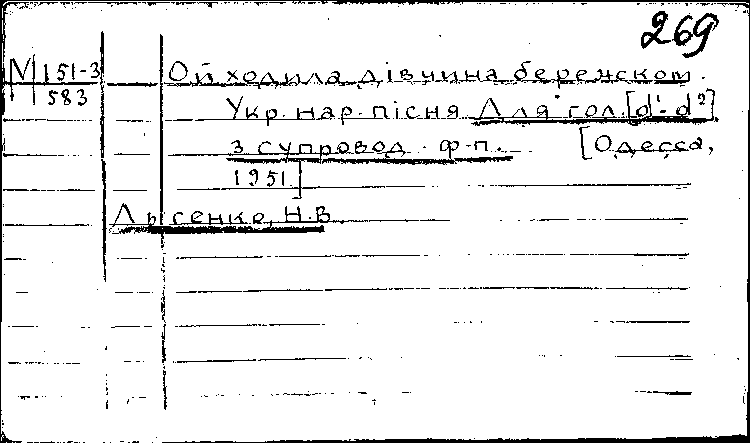 269
N 151-3 Ой ходила дівчина бережком.
583 Укр. нар. пісня Для гол. [d¹-d²]
з супровод. ф-п. [Одесса,
1951]
Лысенко, Н.В.